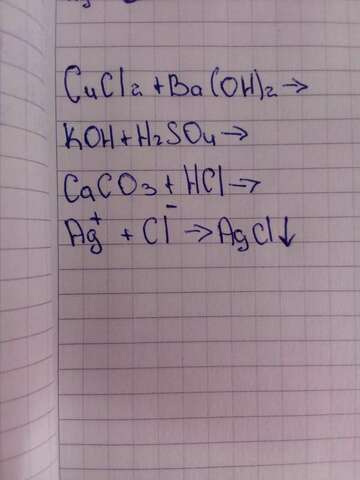 CuCl₂ + Ba(OH)₂ →
KOH + H₂SO₄ →
CaCO₃ + HCl →
Ag⁺ + Cl⁻ → AgCl↓